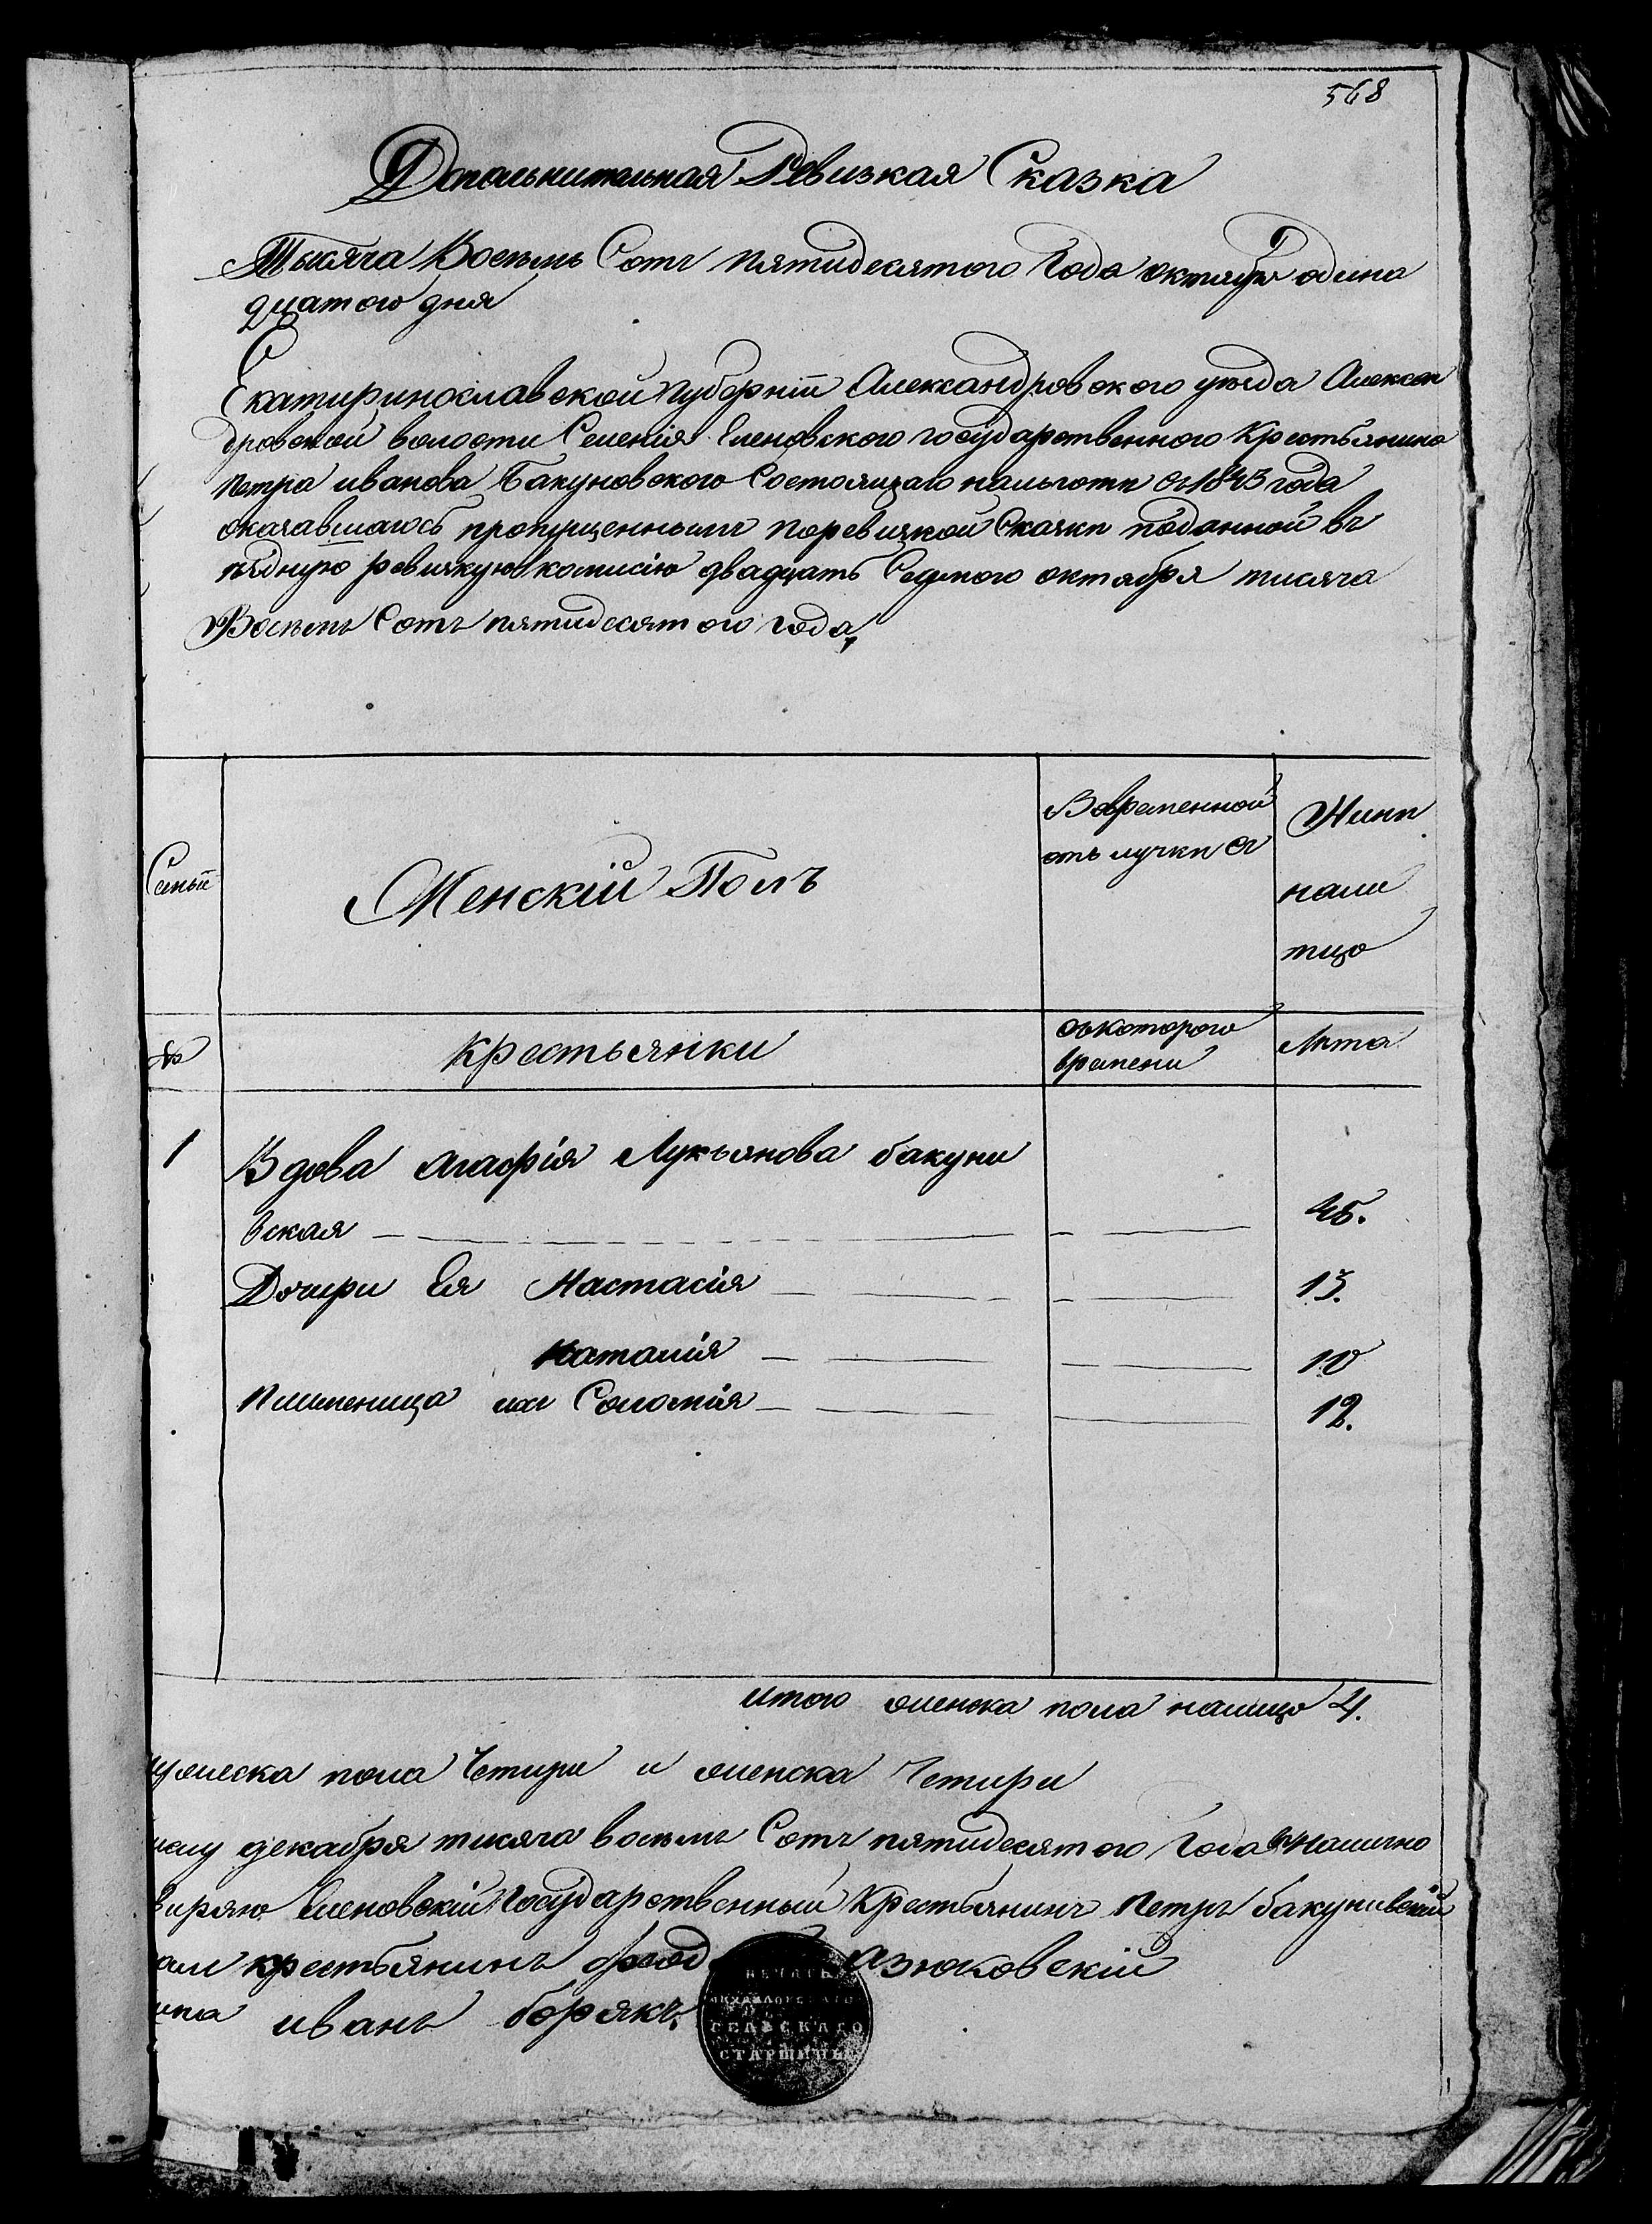 568
Дополнительная Ревизкая Сказка
Тысяча Восемь Сотъ пятидесятого Года октября одина
дцатого дня
Екатиринославской Губерніи Александровского уезда Алексан
дровской волости Селенія Еленовского государственного Крестьянина
Петра иванова Бакуновского Состоящаго нальготи съ 1843 года
оказавшагось пропущеннымъ поревизкой Сказки поданной въ
уездную ревизкую комисію двадцать Седмого октября тисяча
Восемь Сотъ пятидесятого года,
Семьи
Женскій Полъ
Вовременной
отълучки съ
Нине
нали
тцо
№
Крестьянки
съкоторого
времени
Лета
1
Вдова агафія Лукъянова бакуни
вская
45.
Дочери Ея Настасія
13.
Наталія
10
Племеница ихъ Соломія
12.
итого женска пола налицо 4.
мужеска пола Четири и женска Четири
декабря тисяча восемь Сотъ пятидесятого Года
виряю Еленовскій Государственный Крестьянинъ Петръ бакунивскій
крестьянинъ
иванъ борякъ.
ПЕЧАТЬ
МИХАЙЛОВСКАГО
СЕЛЬСКАГО
СТАРШИНЫ